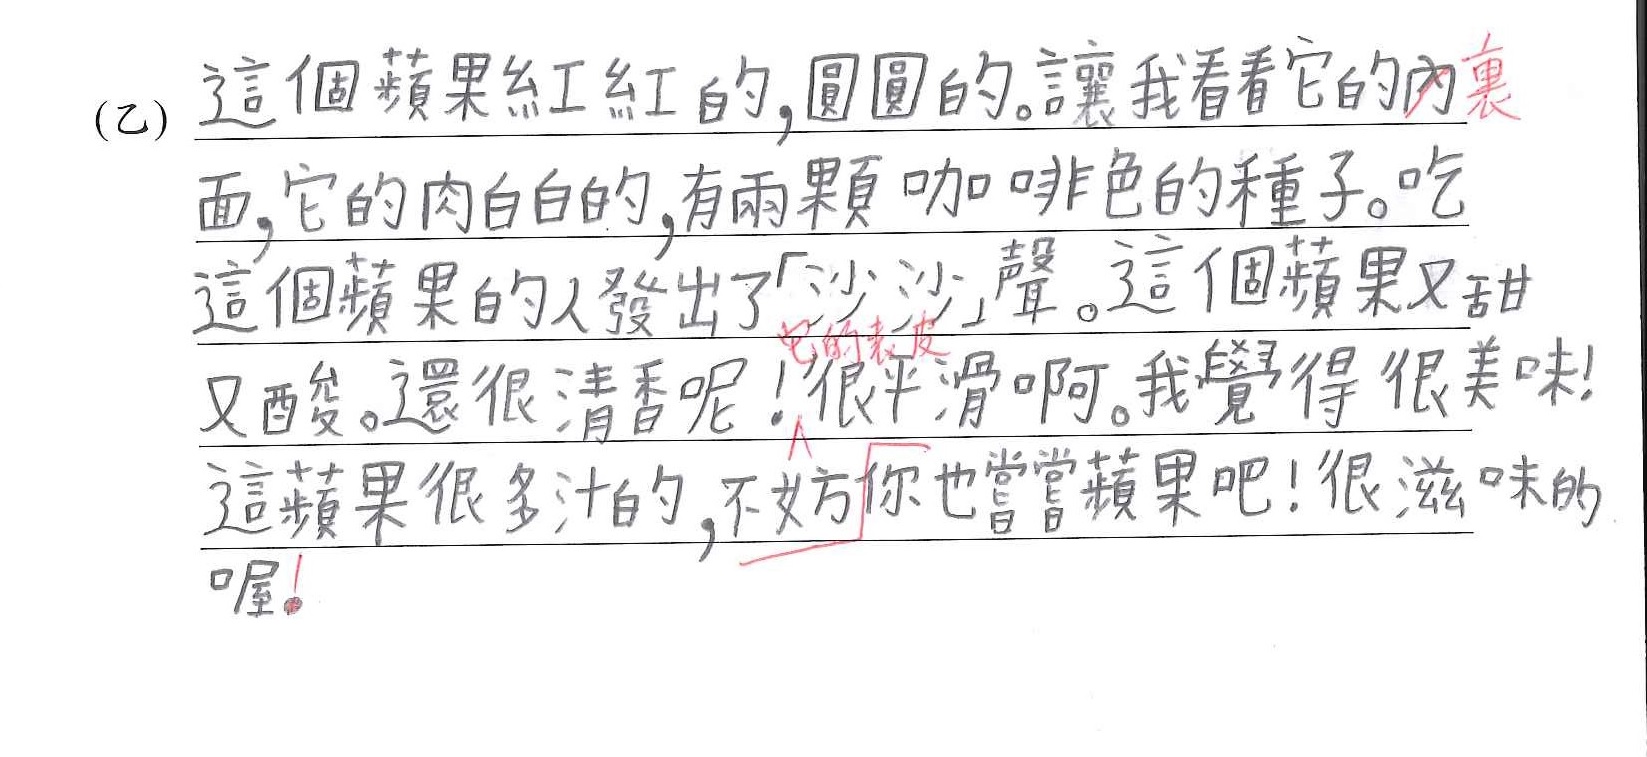 (乙) 這個蘋果紅紅的,圓圓的。讓我看看它的內裏
面,它的肉白白的,有兩顆咖啡色的種子。吃
這個蘋果的人發出了「沙沙」聲。這個蘋果又甜
它的表皮
又酸。還很清香呢!很平滑啊。我覺得很美味!
這蘋果很多汁的,不妨你也嘗嘗蘋果吧!很滋味的
喔!